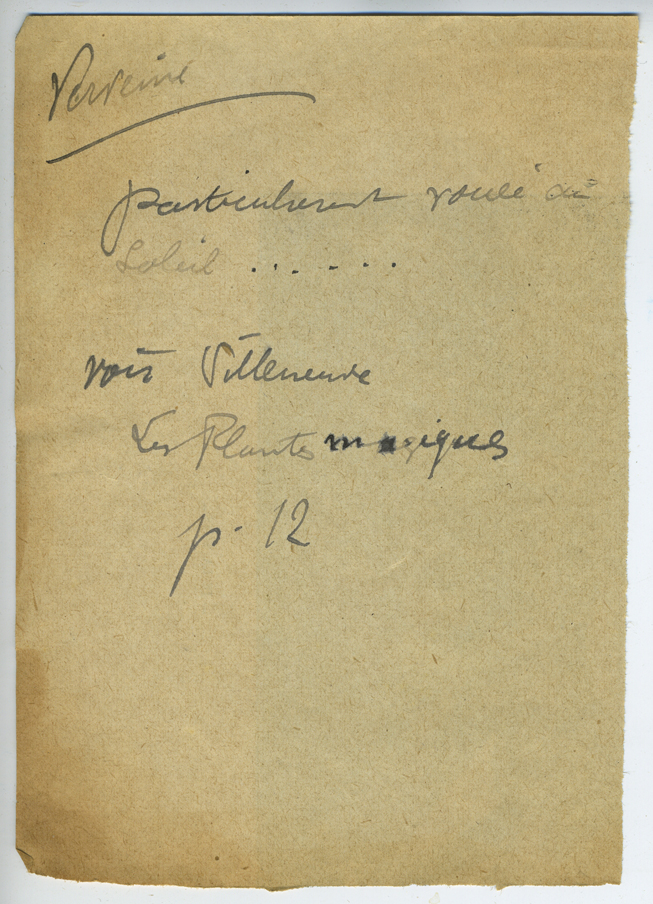 Verveine
particulierement voué au
Soleil .......
voir Villeneuve
Les Plantes magiques
p. 12